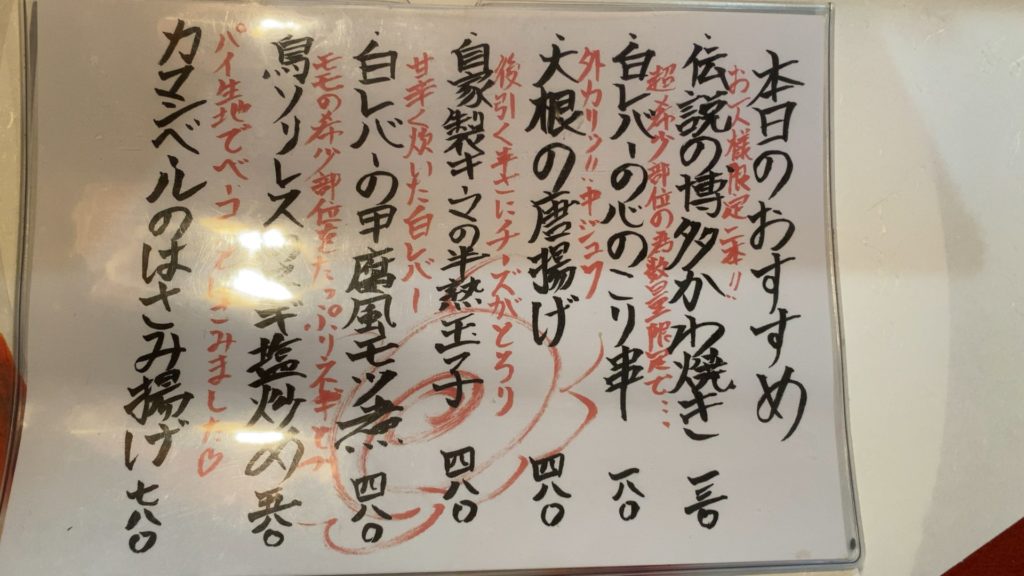 本日のおすすめ
お一人様限定二本!!
・伝説の博多かわ焼き 一三〇
超希少部位の為数量限定で…
・白レバーの心のこり串 一八〇
外カリッ!!中ジュワ
・大根の唐揚げ 四八〇
後引く辛さにチーズがとろり
・自家製キーマの半熟玉子 四八〇
甘辛く炊いた白レバー
・白レバーの甲腐風モツ煮 四八〇
モモの希少部位をたっぷり
鳥ソリレス ギ塩炒め 五八〇
パイ生地でベーコンとはさみました♡
カマンベールのはさみ揚げ 七八〇